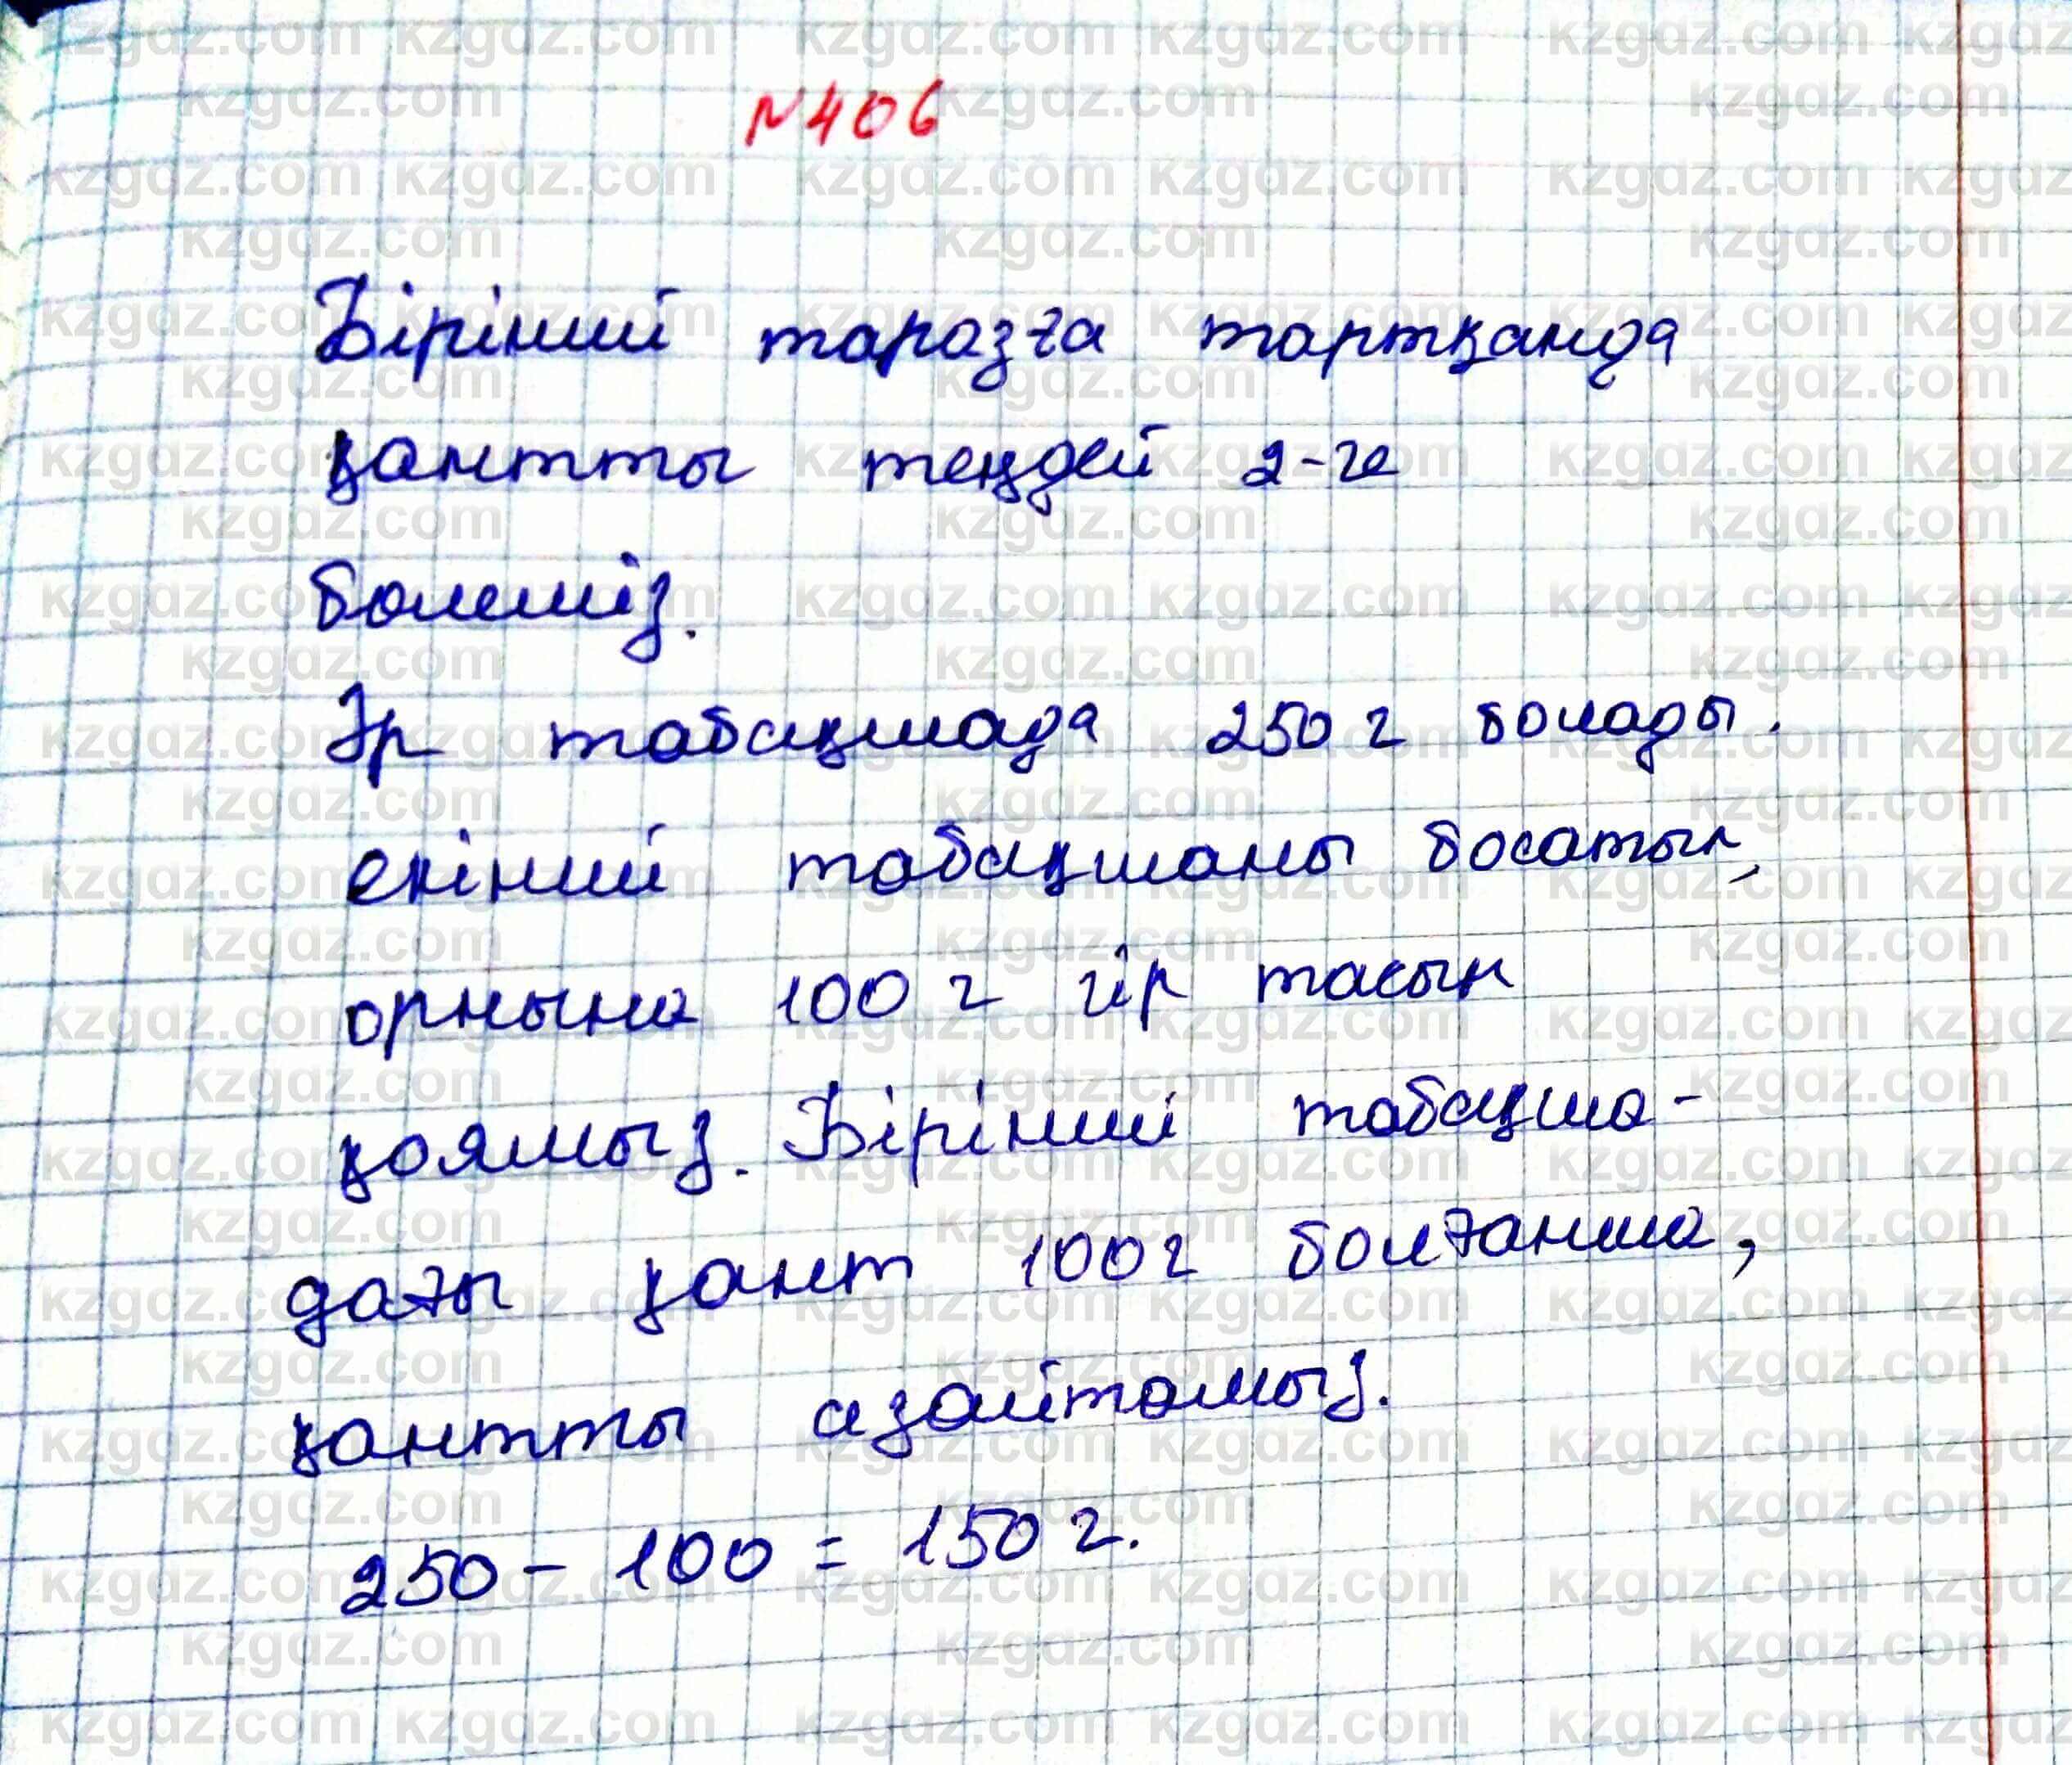 №406
Бірінші таразға тартқанда
қантты теңдей 2-ге
бөлеміз.
Әр табақшада 250 г болады.
екінші табақшаны босатып,
орнына 100 г гір тасын
қоямыз. Бірінші табақша-
дағы қант 100г болғанша,
қантты азайтамыз.
250 - 100 = 150 г.
kzgdz.com